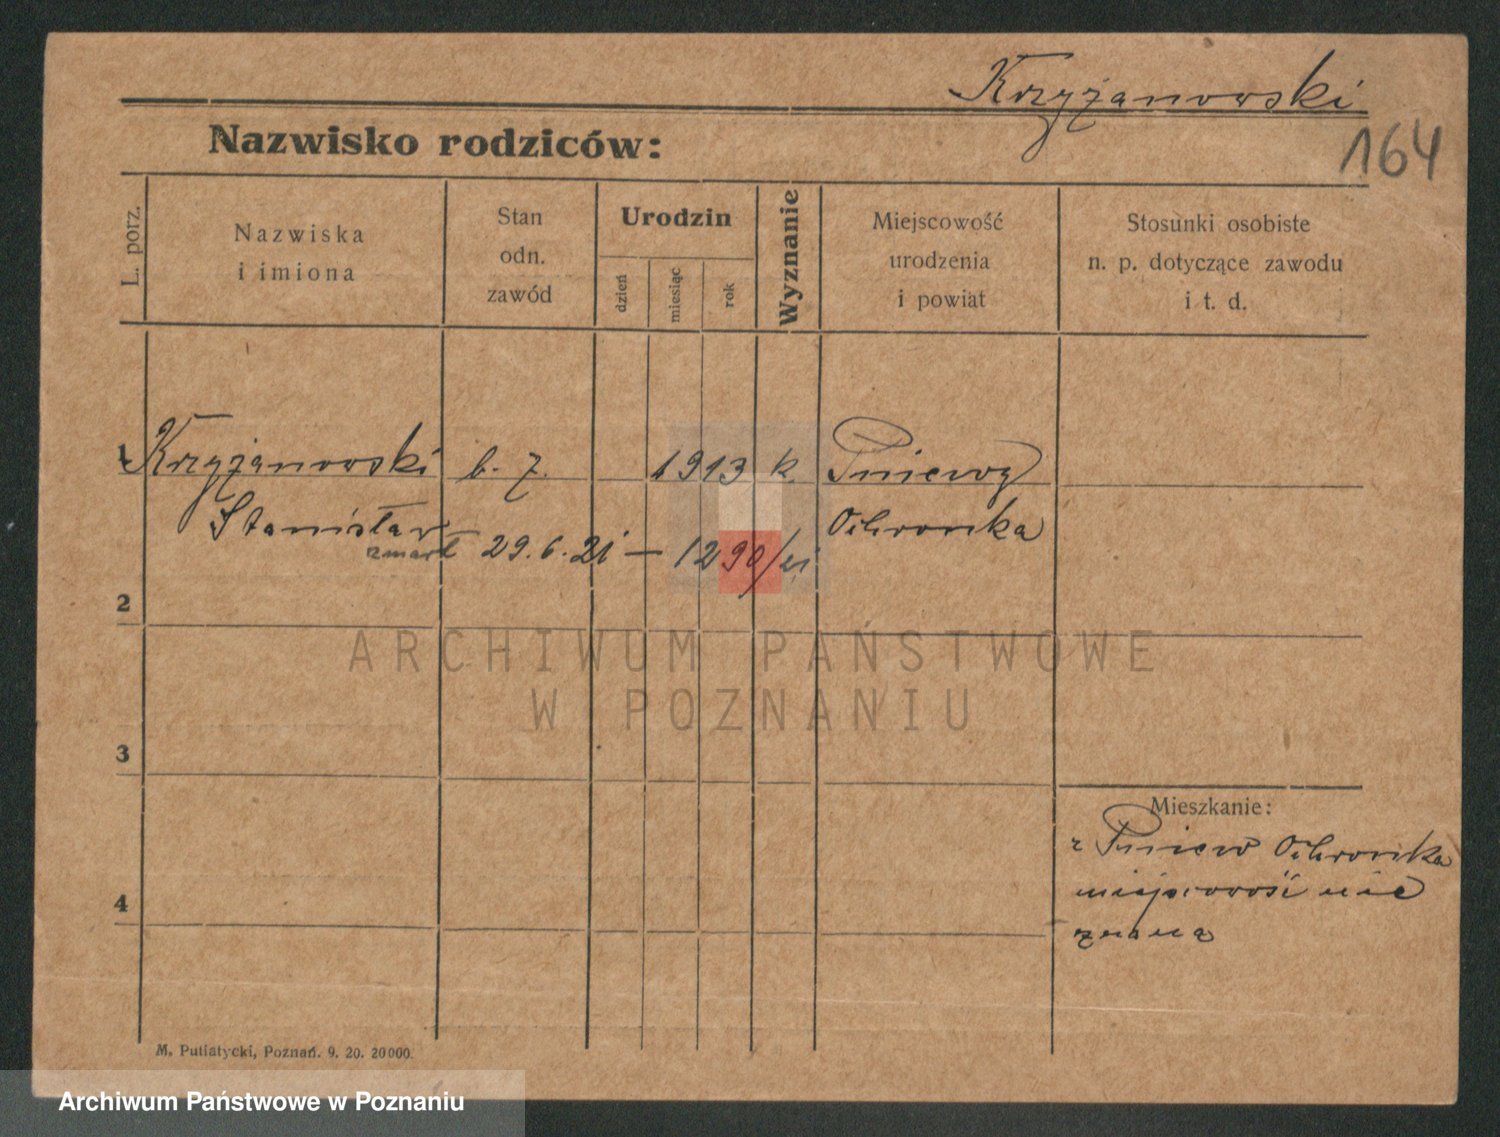 Krzyżanowski
164
Nazwisko rodziców:
L. porz.
Nazwiska
i imiona
Stan
odn.
zawód
Urodzin
dzień
miesiąc
rok
Wyznanie
Miejscowość
urodzenia
i powiat
Stosunki osobiste
n. p. dotyczące zawodu
i t. d.
1 Krzyżanowski b. z. 1913 k. Pniewy
Stanisław Ochronka
zmarł 29.6.21 — 1290/21
2
3
4
Mieszkanie:
z Pniew Ochronka
miejscowość nie
znana
M. Putiatycki, Poznań. 9. 20. 20000.
ARCHIWUM PAŃSTWOWE
W POZNANIU
Archiwum Państwowe w Poznaniu